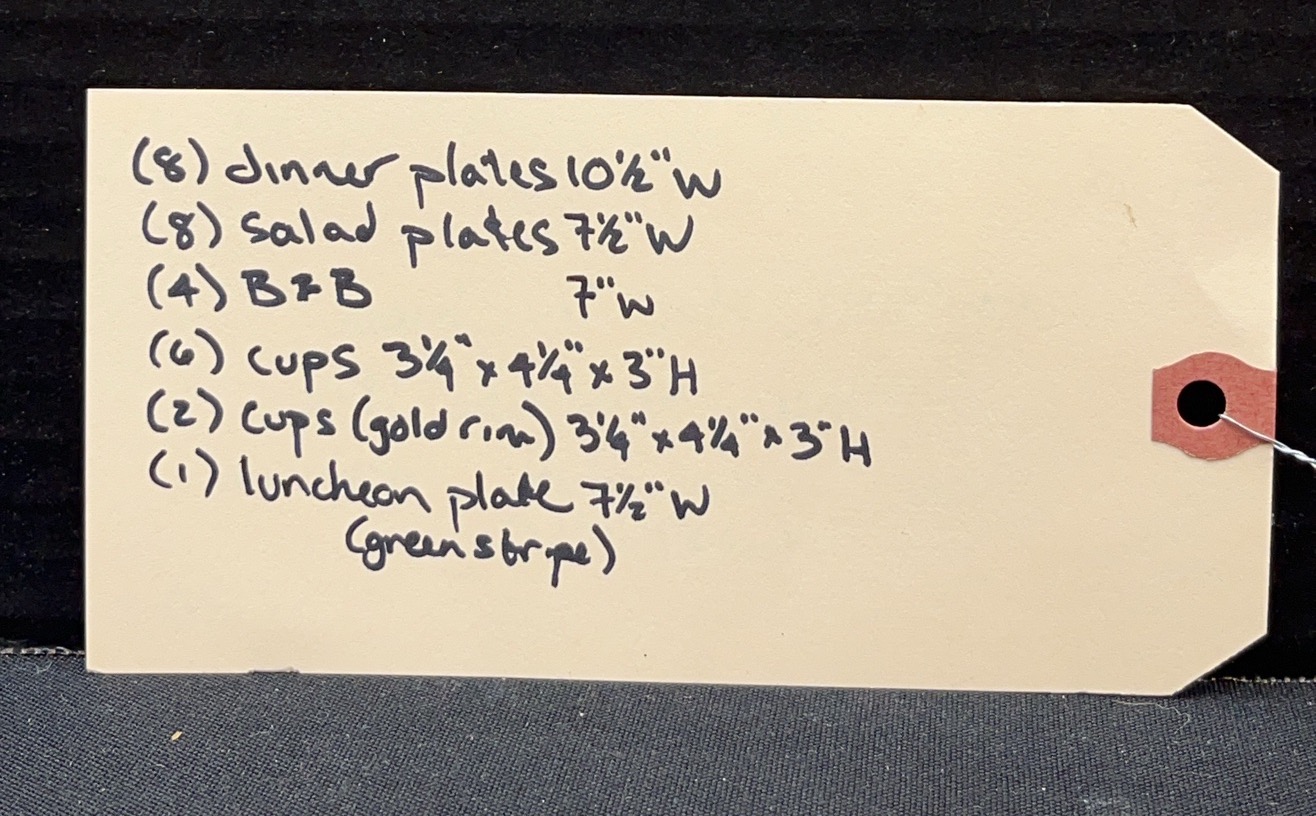 (8) dinner plates 10½" W
(8) Salad plates 7½" W
(4) B & B 7" W
(6) cups 3¼" x 4¼" x 3" H
(2) cups (gold rim) 3¼" x 4¼" x 3" H
(1) luncheon plate 7½" W
(green stripe)